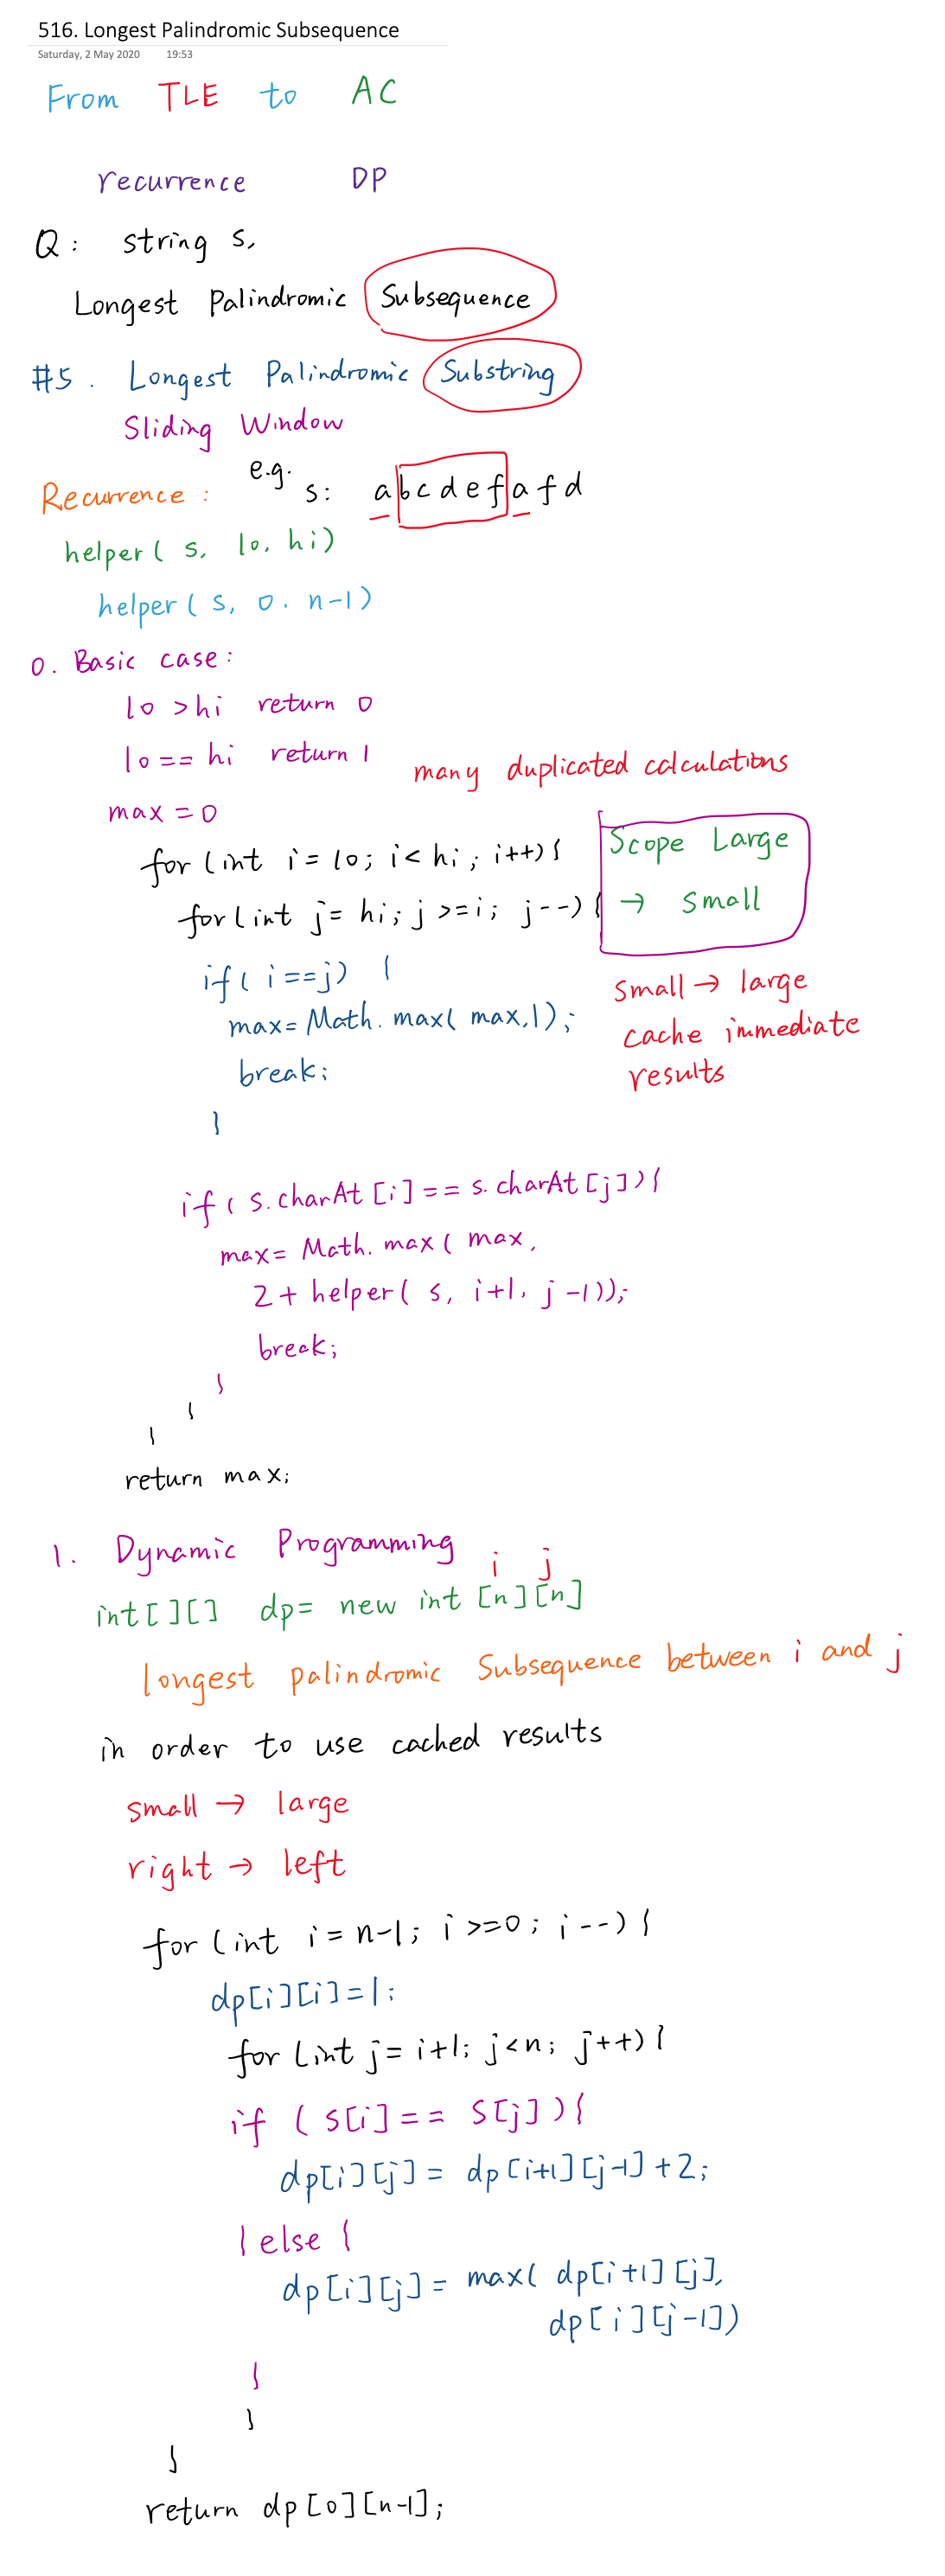 516. Longest Palindromic Subsequence
Saturday, 2 May 2020 19:53
From TLE to AC
recurrence DP
Q: string s,
Longest Palindromic Subsequence
#5. Longest Palindromic Substring
Sliding Window
Recurrence: e.g. s: abcdefafd
helper( s, lo, hi)
helper( s, 0, n-1)
0. Basic case:
lo >hi return 0
lo == hi return 1
many duplicated calculations
max = 0
for (int i = lo; i< hi; i++){
Scope Large
for(int j= hi; j >=i; j--){
→ small
if( i==j) {
small → large
max= Math.max( max,1);
cache immediate
break;
results
}
if( s.charAt[i] == s.charAt[j]){
max= Math.max( max,
2+ helper( s, i+1, j-1));
break;
}
}
}
return max;
1. Dynamic Programming
i j
int[][] dp= new int [n][n]
longest palindromic Subsequence between i and j
in order to use cached results
small → large
right → left
for (int i = n-1; i >=0; i--) {
dp[i][i]=1;
for (int j= i+1; j<n; j++){
if ( s[i] == s[j] ){
dp[i][j] = dp[i+1][j-1]+2;
} else {
dp[i][j] = max( dp[i+1][j],
dp[i][j-1])
}
}
}
return dp[0][n-1];